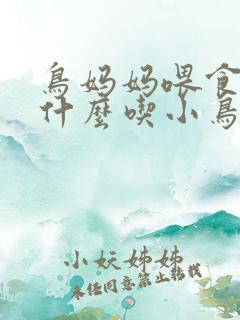 鳥妈妈喂食
什麼喫小鳥
小妖姊姊
未经同意禁止转载